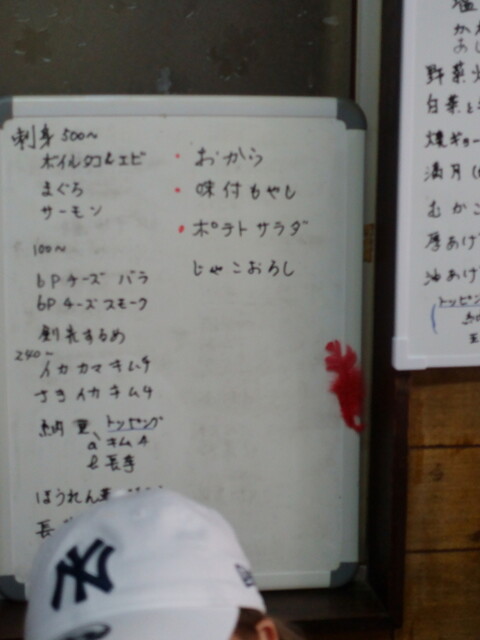 刺身 500~
ボイルタコ&エビ
まぐろ
サーモン
100~
6Pチーズ バラ
6Pチーズスモーク
するめ
240~
イカ カマ キムチ
さき イカ キムチ
納豆 トッピング
a キムチ
長芋
ほうれん
長
・おから
・味付もやし
・ポテトサラダ
じゃこおろし
野菜
白菜と
焼ギョー
満月
むかこ
厚あげ
油あげ
トッピン
NY